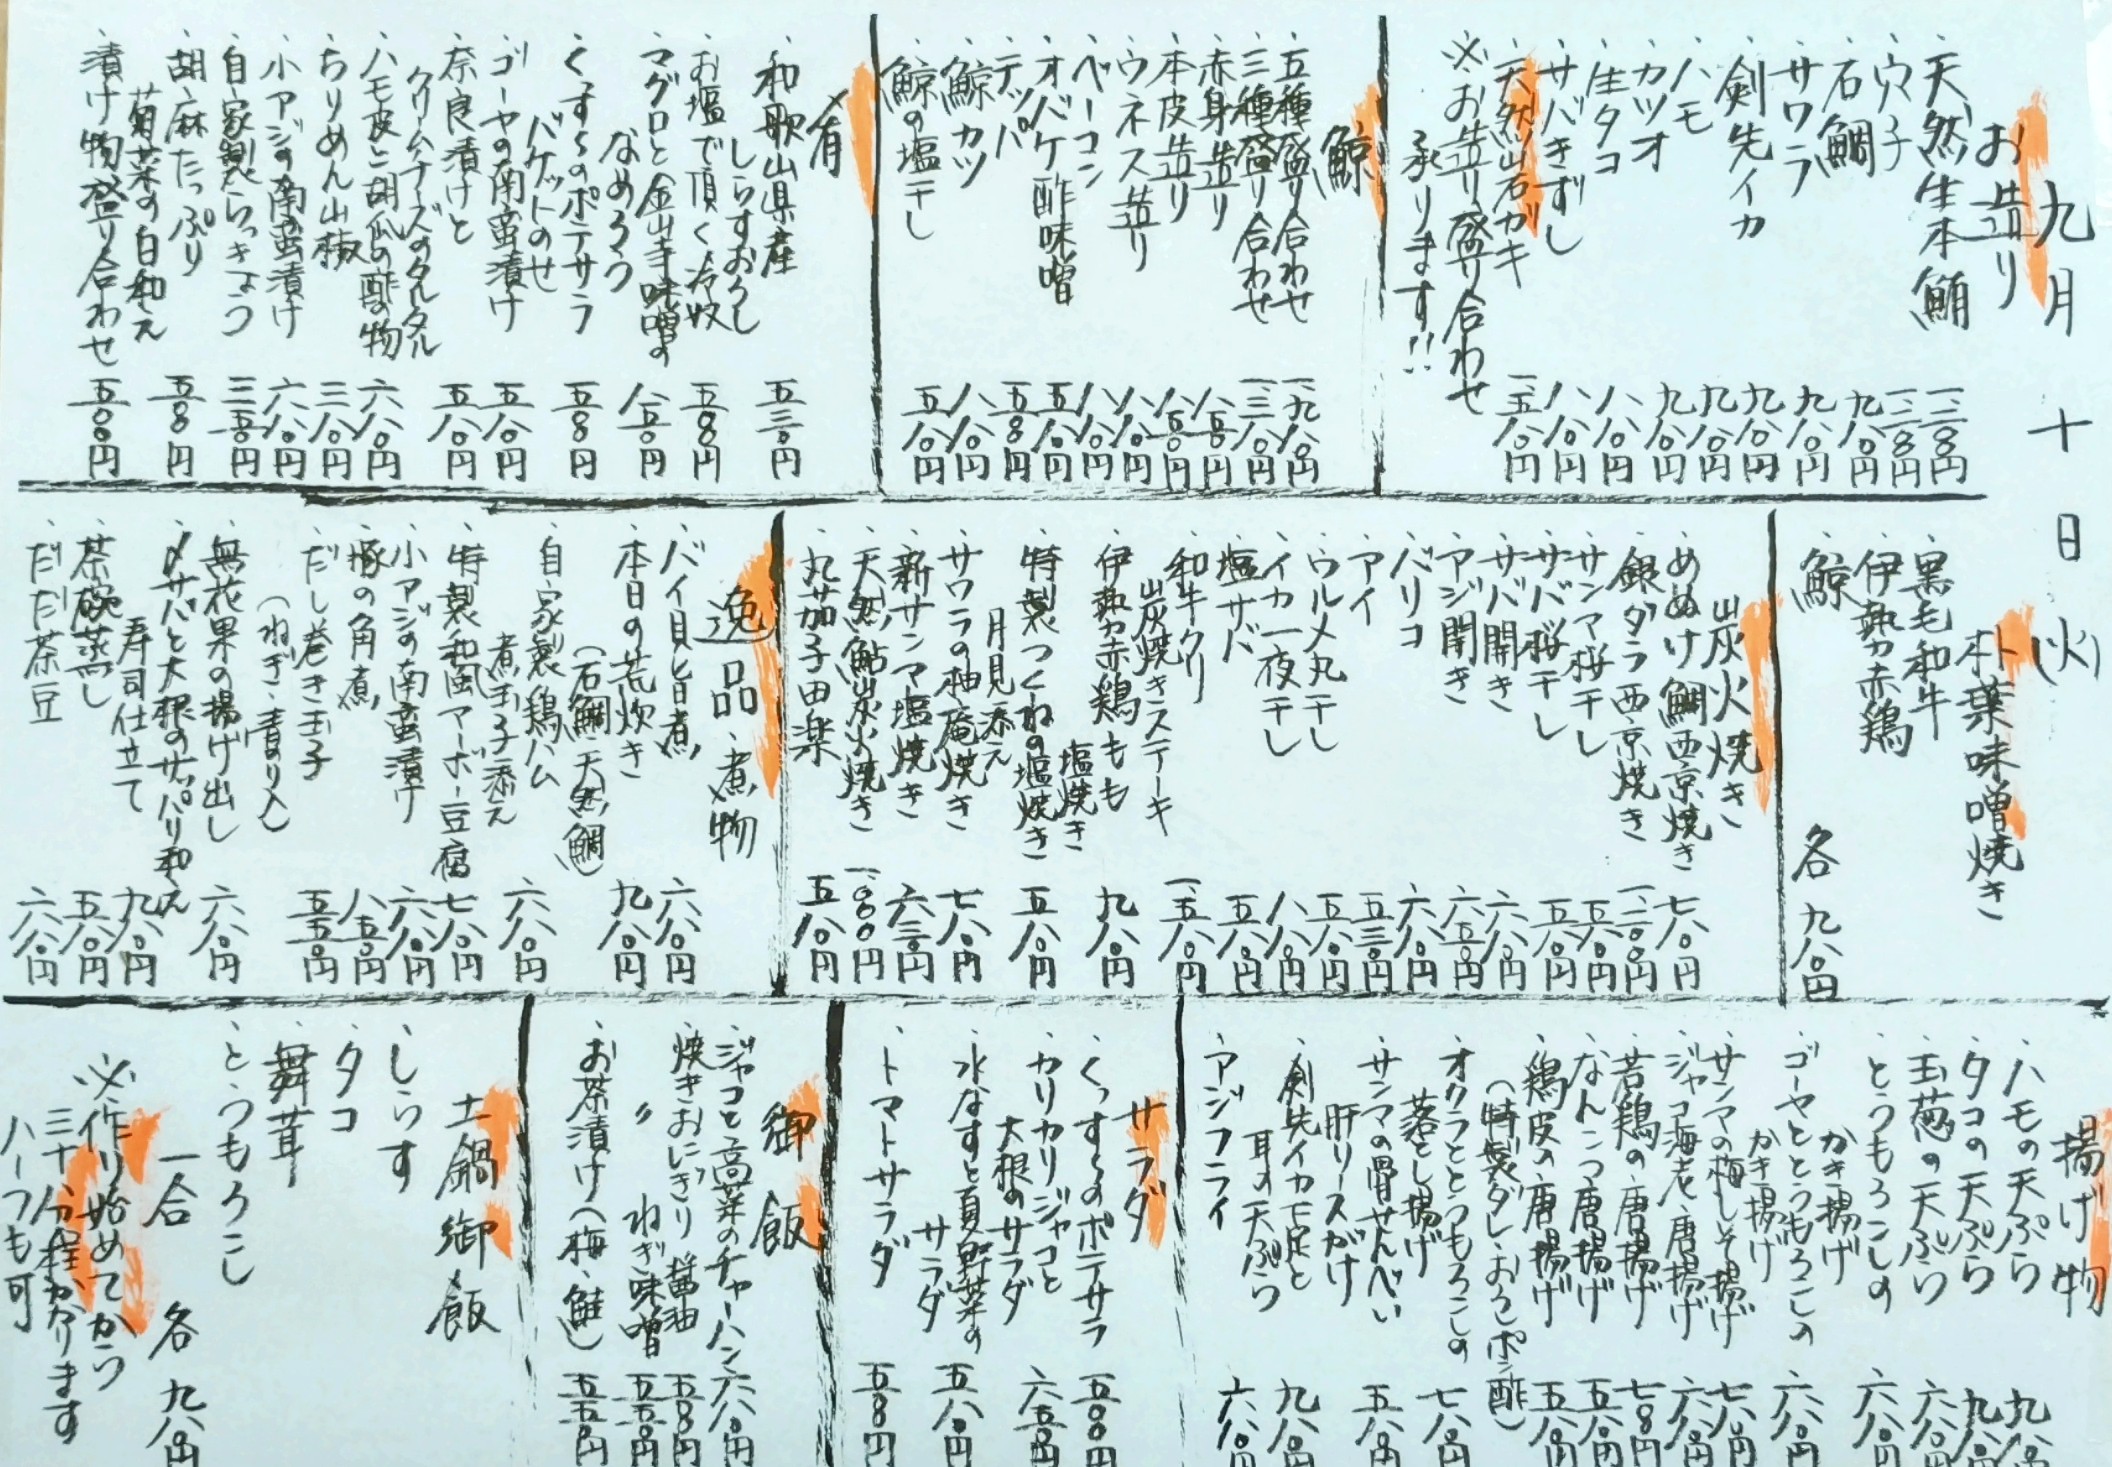 九月十日(火)
お造り
・天然生本鮪 一、三八〇円
・穴子 一、三八〇円
・石鯛 九八〇円
・サワラ 九八〇円
・剣先イカ 九八〇円
・ハモ 九八〇円
・カツオ 九八〇円
・生タコ 八八〇円
・サバきずし 八八〇円
・天然岩ガキ 一、五八〇円
※お造り盛り合わせ
承ります!!
鯨
・五種盛り合わせ 一、九八〇円
・三種盛り合わせ 一、三八〇円
・赤身造り 八五〇円
・本皮造り 八五〇円
・ウネス造り 八八〇円
・ベーコン 八八〇円
・オバケ酢味噌 五八〇円
・テッパ 五五〇円
・鯨カツ 八八〇円
・鯨の塩干し 五八〇円
肴
・和歌山県産
しらすおろし 五三〇円
・お塩で頂く冷奴 五五〇円
・マグロと金山寺味噌の
なめろう 八五〇円
・くっすぅのポテサラ
バケットのせ 五五〇円
・ゴーヤの南蛮漬け 五八〇円
・奈良漬けと
クリームチーズのタルタル 五八〇円
・ハモ皮と胡瓜の酢の物 六八〇円
・ちりめん山椒 三八〇円
・小アジの南蛮漬け 六八〇円
・自家製らっきょう 三五〇円
・胡麻たっぷり
菊菜の白和え 五五〇円
・漬け物盛り合わせ 五五〇円
朴葉味噌焼き
・黒毛和牛
・伊勢赤鶏
・鯨
各 九八〇円
炭火焼き
・めぬけ鯛西京焼き 七八〇円
・銀ダラ西京焼き 一、二〇〇円
・サンマ桜干し 五八〇円
・サバ桜干し 五八〇円
・サバ開き 六八〇円
・アジ開き 六五〇円
・バリコ 六八〇円
・アイ 五三〇円
・ウルメ丸干し 五八〇円
・イカ一夜干し 八八〇円
・塩サバ 五八〇円
・和牛クリ
炭焼きステーキ 一、五八〇円
・伊勢赤鶏もも
塩焼き 九八〇円
・特製つくねの塩焼き
月見添え 五八〇円
・サワラの柚庵焼き 七八〇円
・新サンマ塩焼き 六三〇円
・天然鮎炭火焼き 一、〇〇〇円
・丸茄子田楽 五八〇円
逸品・煮物
・バイ貝旨煮 六八〇円
・本日の荒炊き
(石鯛、天然鯛) 九八〇円
・自家製鶏ハム
煮玉子添え 六八〇円
・特製和風マーボー豆腐 七八〇円
・小アジの南蛮漬け 六八〇円
・豚の角煮 八五〇円
・だし巻き玉子
(ねぎ・青のり入) 五五〇円
・無花果の揚げ出し 六八〇円
・〆サバと大根のサッパリ和え
寿司仕立て 九八〇円
・茶碗蒸し 五八〇円
・だだ茶豆 六八〇円
揚げ物
・ハモの天ぷら 九八〇円
・タコの天ぷら 九八〇円
・玉葱の天ぷら 六八〇円
・とうもろこしの
かき揚げ 六八〇円
・ゴーヤととうもろこしの
かき揚げ 六八〇円
・サンマの梅しそ揚げ 七八〇円
・ジャコ海老唐揚げ 六八〇円
・若鶏の唐揚げ 七五〇円
・なんこつ唐揚げ 五八〇円
・鶏皮の唐揚げ
(特製ダレ・おろしポン酢) 五八〇円
・オクラととうもろこしの
落とし揚げ 七八〇円
・サンマの骨せんべい
肝リースがけ 五八〇円
・剣先イカ下足と
耳の天ぷら 九八〇円
・アジフライ 六八〇円
サラダ
・くっすぅのポテサラ 五五〇円
・カリカリジャコと
大根のサラダ 六五〇円
・水なすと夏野菜の
サラダ 五八〇円
・トマトサラダ 五五〇円
御飯
・ジャコと高菜のチャーハン 六八〇円
・焼きおにぎり 醤油 五五〇円
〃 ねぎ味噌 五五〇円
・お茶漬け(梅、鮭) 五五〇円
土鍋御飯
・しらす
・タコ
・舞茸
・とうもろこし
一合 各 九八〇円
※作り始めてから
三十分程かかります
ハーフも可